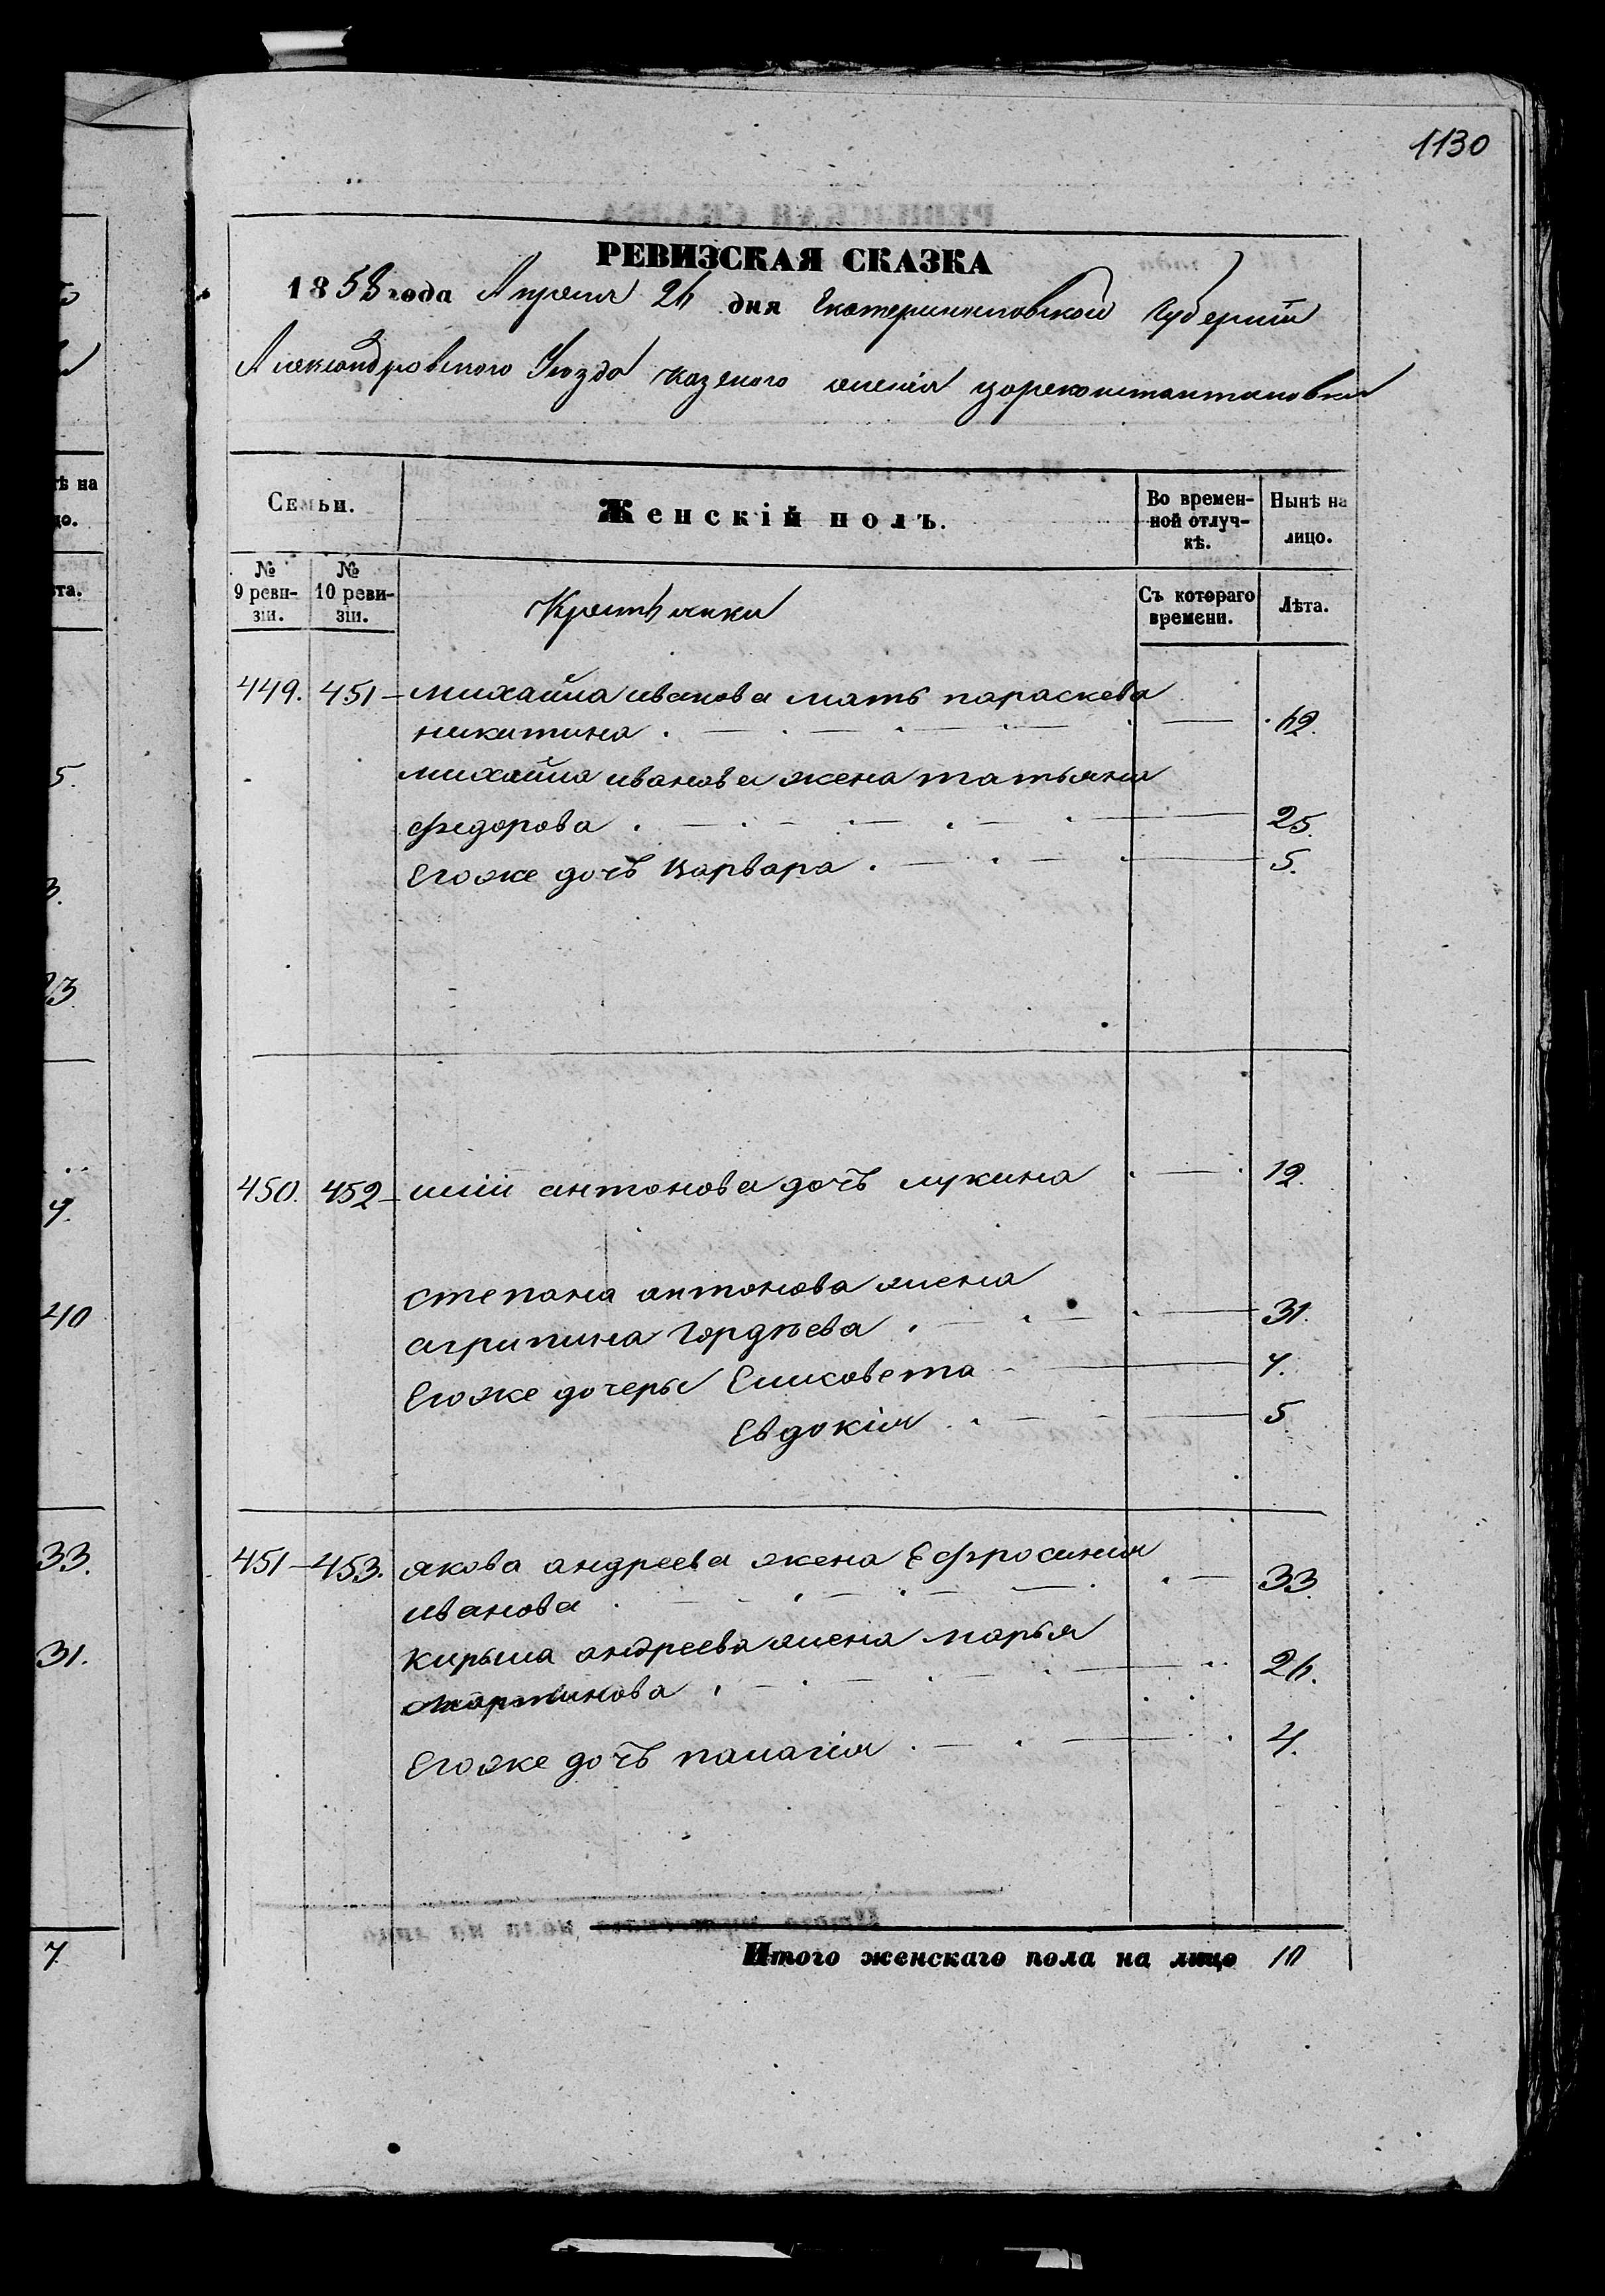 1130
РЕВИЗСКАЯ СКАЗКА
1858 года Апреля 26 дня Екатеринославской Губернии
Александровского Уезда казеного имения цареконстантиновки
Семьи.
Женскій полъ.
Во времен-
ной отлуч-
кѣ.
Нынѣ на
лицо.
№
9 реви-
зіи.
№
10 реви-
зіи.
Крестьянки
Съ котораго
времени.
Лѣта.
449. 451 михайла иванова мать параскева
никитина 62.
михайла иванова жена татьяна
федорова 25.
Егоже дочь варвара 5.
450. 452 антонова дочь лукина 12.
степана антонова жена
агрипина Гордѣева 31.
Егоже дочеры Елисовета 7.
Евдокія 5
451 453. якова андреева жена Ефросинія
иванова 33.
Кирыла андреева жена марья
мартинова 26.
Егоже дочь палагія 4.
Итого женскаго пола на лицо 10
ѣ на
цо.
та.
5.
3.
23
9.
40
33.
31.
7